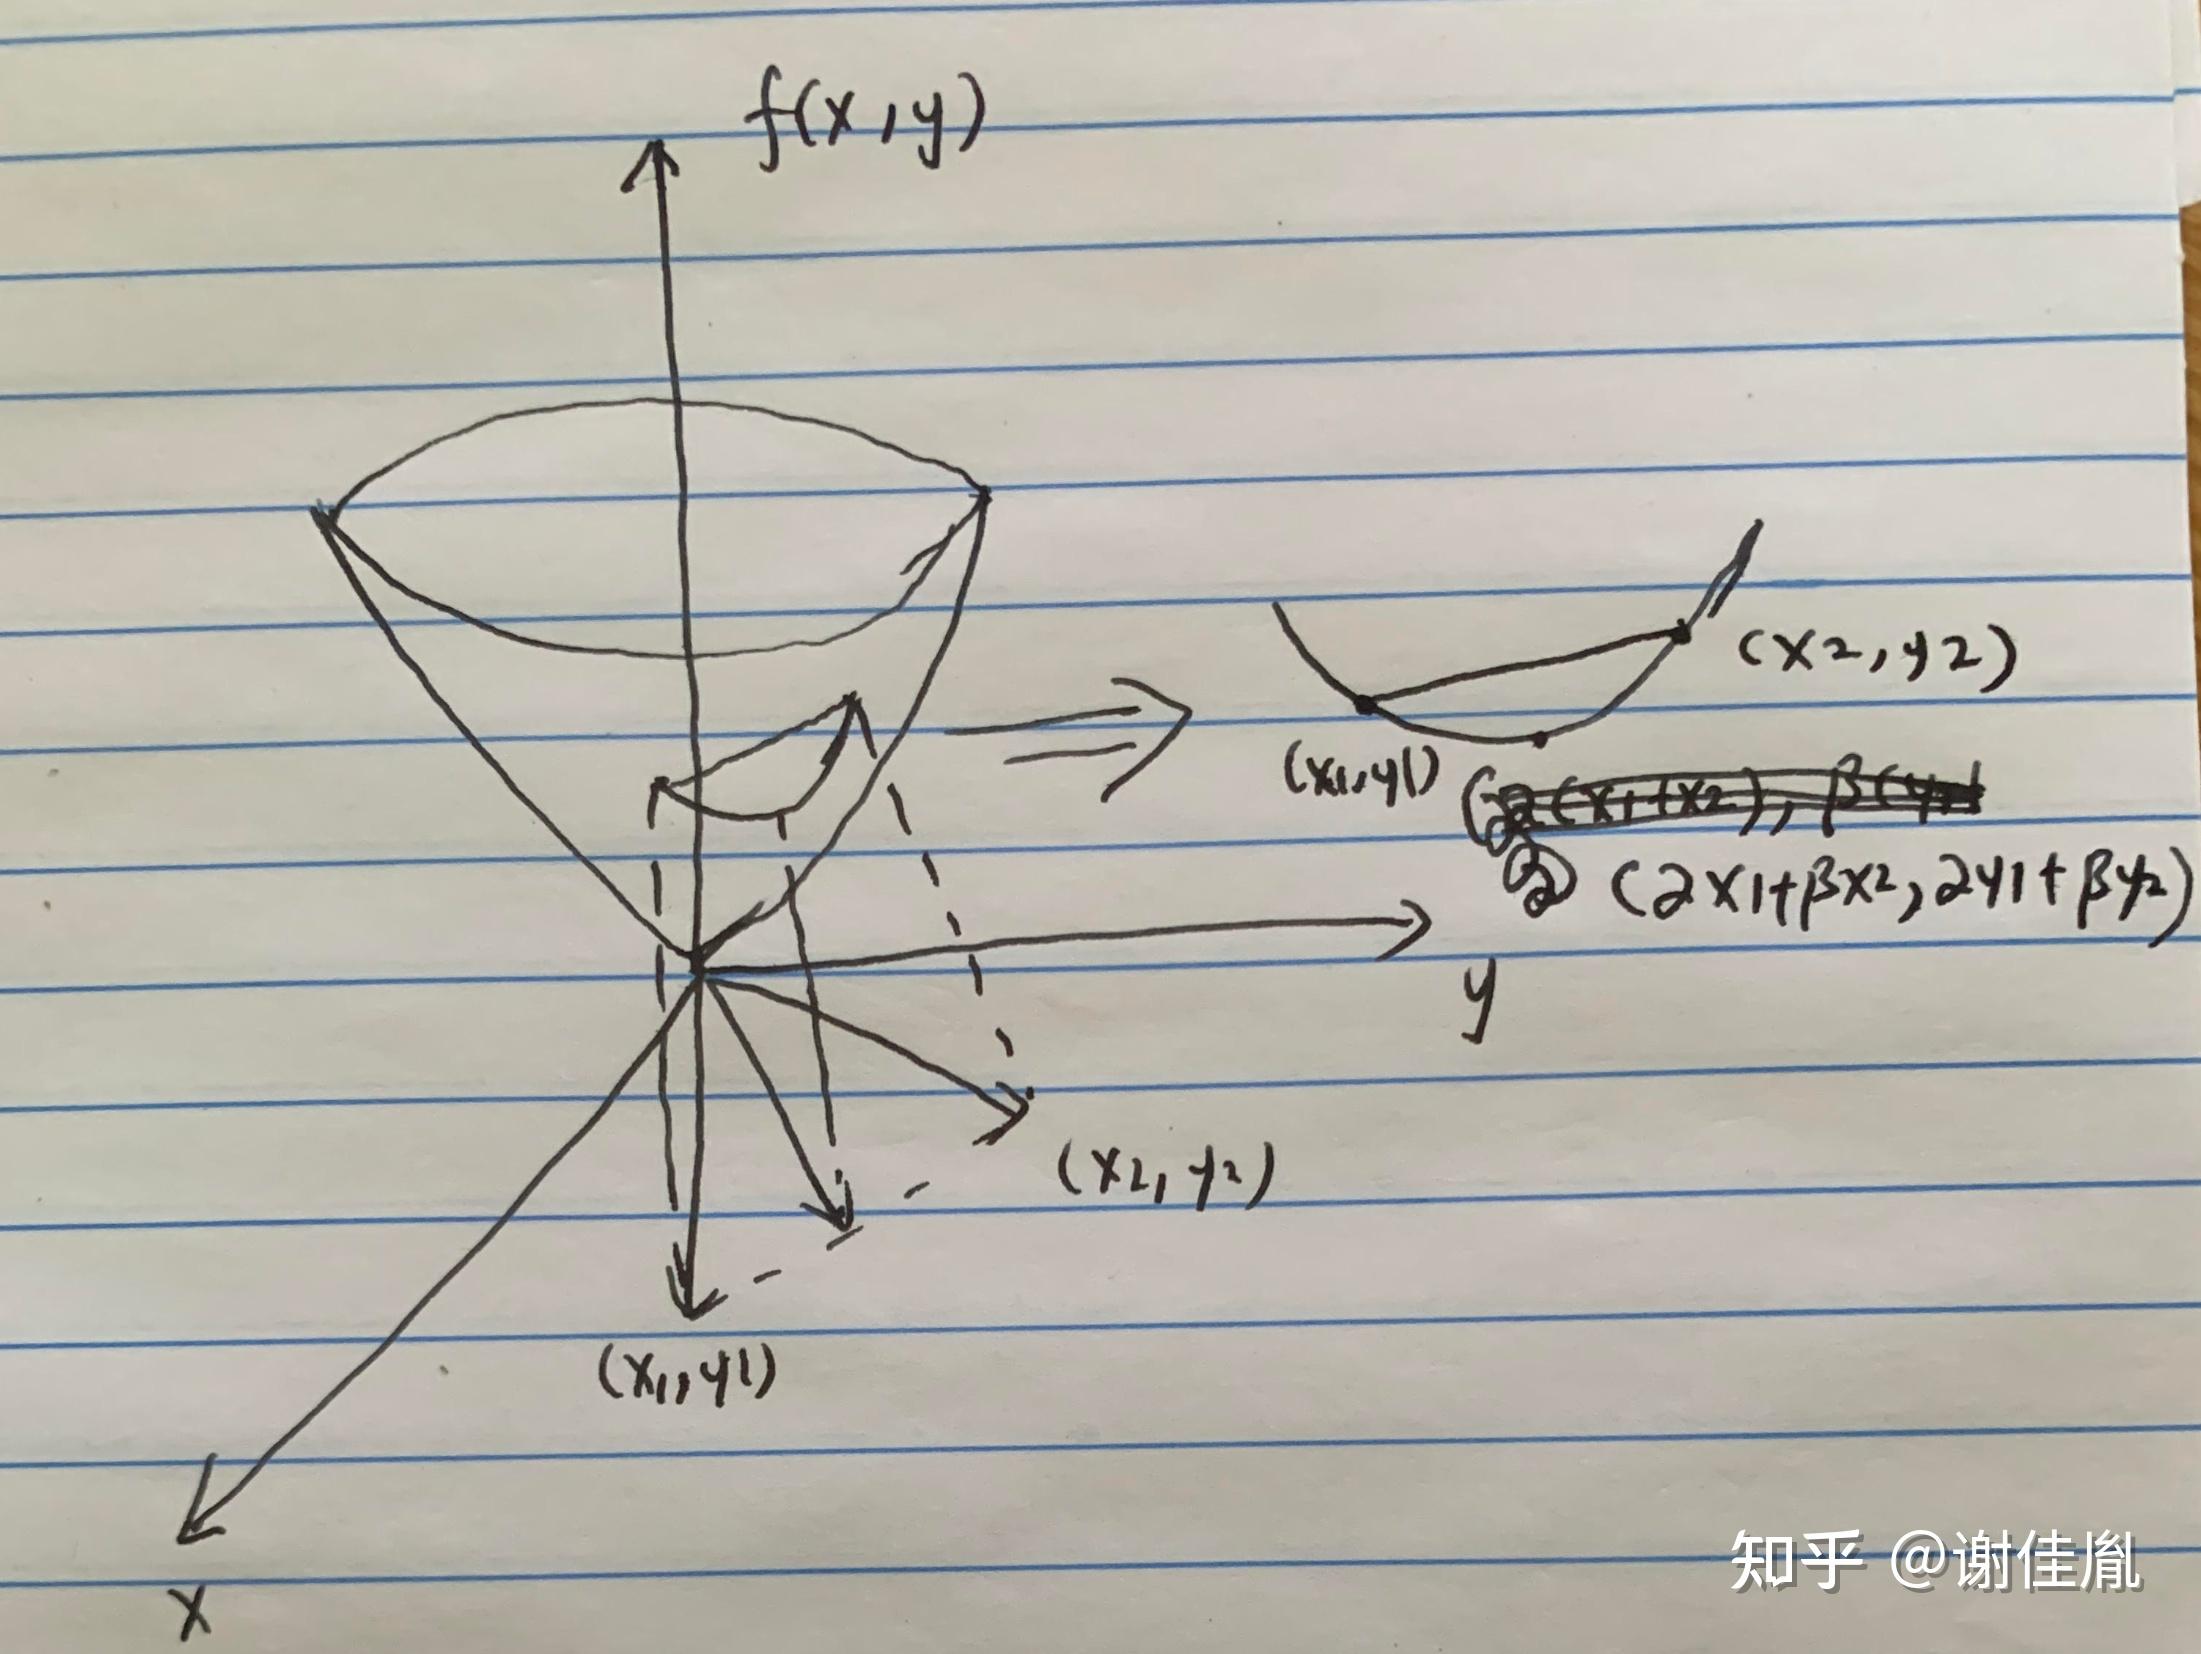 f(x,y)
(x2,y2)
(x1,y1)
(2x1+βx2,2y1+βy2)
y
(x2,y2)
(x1,y1)
x
知乎 @谢佳胤